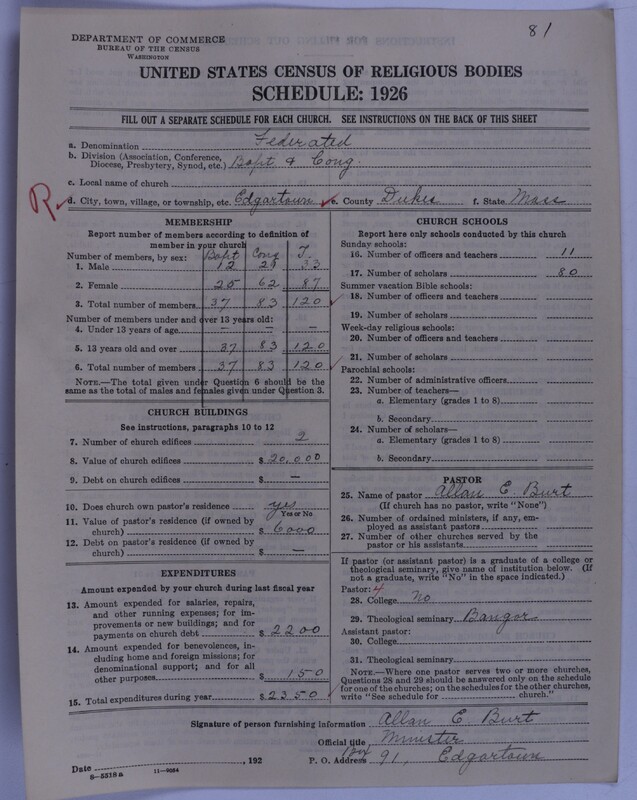 81
DEPARTMENT OF COMMERCE
BUREAU OF THE CENSUS
WASHINGTON
UNITED STATES CENSUS OF RELIGIOUS BODIES
SCHEDULE: 1926
FILL OUT A SEPARATE SCHEDULE FOR EACH CHURCH. SEE INSTRUCTIONS ON THE BACK OF THIS SHEET
a. Denomination Federated
b. Division (Association, Conference, Diocese, Presbytery, Synod, etc.) Bapt & Cong
c. Local name of church
R d. City, town, village, or township, etc. Edgartown e. County Dukes f. State Mass
MEMBERSHIP
Report number of members according to definition of
member in your church
Number of members, by sex: Bapt Cong T.
1. Male 12 21 33
2. Female 25 62 87
3. Total number of members 37 83 120
Number of members under and over 13 years old:
4. Under 13 years of age — — —
5. 13 years old and over 37 83 120
6. Total number of members 37 83 120
NOTE.—The total given under Question 6 should be the
same as the total of males and females given under Question 3.
CHURCH BUILDINGS
See instructions, paragraphs 10 to 12
7. Number of church edifices 2
8. Value of church edifices $ 20,000
9. Debt on church edifices $ —
10. Does church own pastor's residence yes
Yes or No
11. Value of pastor's residence (if owned by
church) $ 6000
12. Debt on pastor's residence (if owned by
church) $ —
EXPENDITURES
Amount expended by your church during last fiscal year
13. Amount expended for salaries, repairs,
and other running expenses; for im-
provements or new buildings; and for
payments on church debt $ 2200
14. Amount expended for benevolences, in-
cluding home and foreign missions; for
denominational support; and for all
other purposes $ 150
15. Total expenditures during year $ 2350
CHURCH SCHOOLS
Report here only schools conducted by this church
Sunday schools:
16. Number of officers and teachers 11
17. Number of scholars 80
Summer vacation Bible schools:
18. Number of officers and teachers
19. Number of scholars
Week-day religious schools:
20. Number of officers and teachers
21. Number of scholars
Parochial schools:
22. Number of administrative officers
23. Number of teachers—
a. Elementary (grades 1 to 8)
b. Secondary
24. Number of scholars—
a. Elementary (grades 1 to 8)
b. Secondary
PASTOR
25. Name of pastor Allan E. Burt
(If church has no pastor, write "None")
26. Number of ordained ministers, if any, em-
ployed as assistant pastors
27. Number of other churches served by the
pastor or his assistants
If pastor (or assistant pastor) is a graduate of a college or
theological seminary, give name of institution below. (If
not a graduate, write "No" in the space indicated.)
Pastor: 4
28. College No
29. Theological seminary Bangor
Assistant pastor:
30. College
31. Theological seminary
NOTE.—Where one pastor serves two or more churches,
Questions 28 and 29 should be answered only on the schedule
for one of the churches; on the schedules for the other churches,
write "See schedule for church."
Signature of person furnishing information Allan E. Burt
Official title Minister
Date , 192 P. O. Address Box 91, Edgartown
8—5518a 11—9084